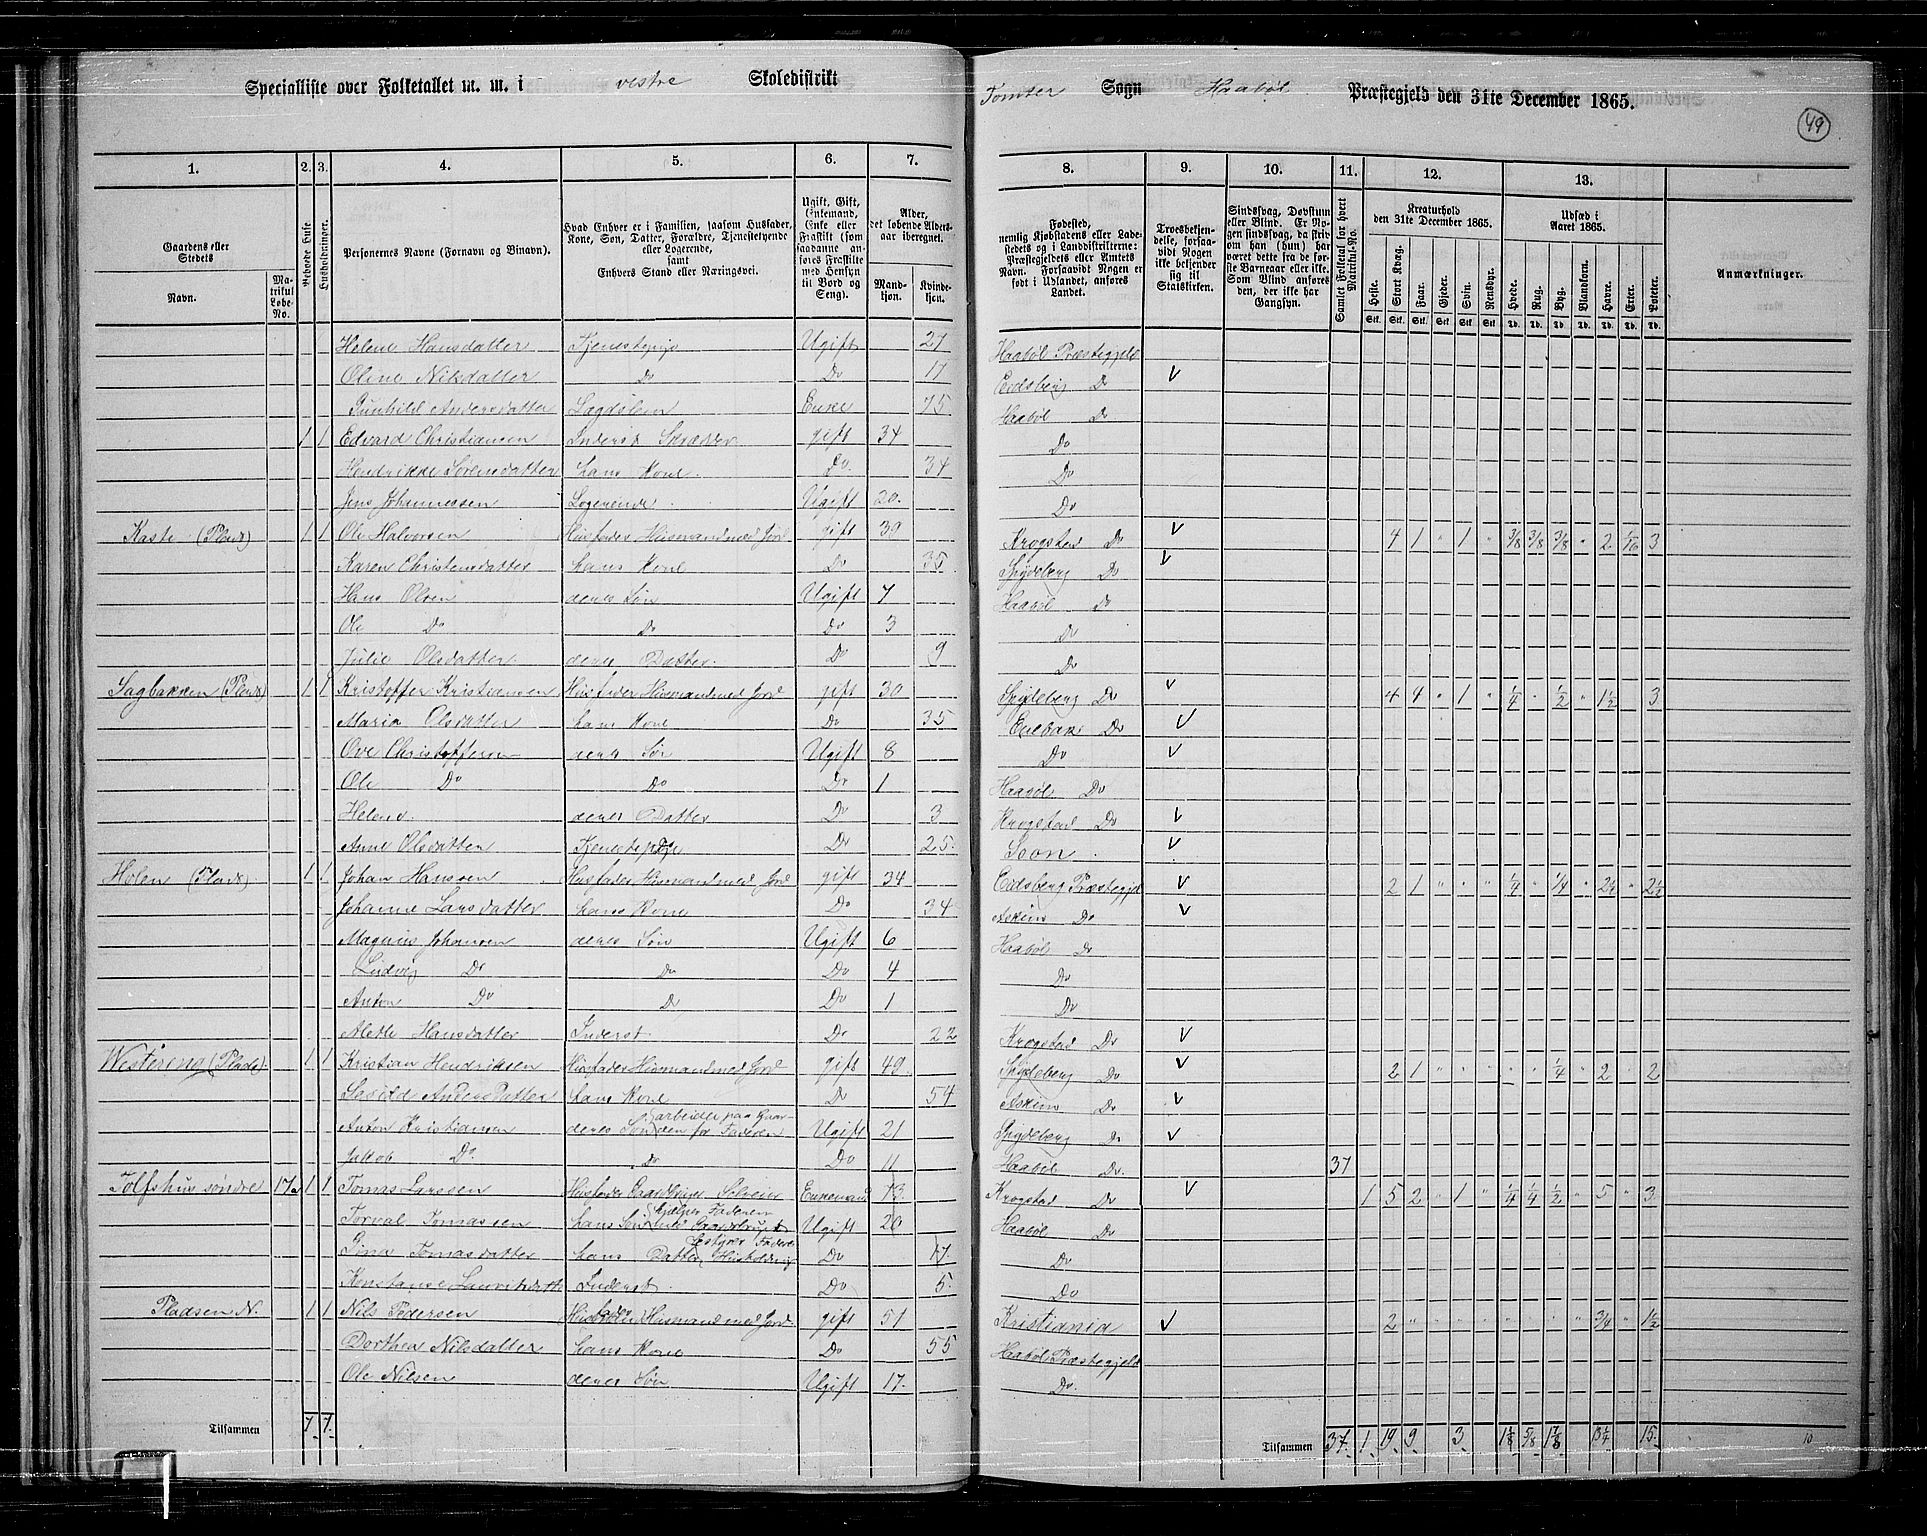 Specialliste over Folketallet m. m. i vestre Skoledistrikt Tomter Sogn Haabøl Præstegjeld den 31te December 1865.
49
1. 2. 3. 4. 5. 6. 7. 8. 9. 10. 11. 12. 13.
Gaardens eller Stedets Navn.
Matrikul Løbe-No.
Beboede Huse.
Husholdninger.
Personernes Navne (Fornavn og Binavn).
Hvad Enhver er i Familien, saasom Husfader, Kone, Søn, Datter, Forældre, Tjenestetyende eller Logerende, samt Enhvers Stand eller Næringsvei.
Ugift, Gift, Enkemand, Enke eller Fraskilt (som saadanne anføres Fraskilte med Hensyn til Bord og Seng).
Alder, det løbende Aldersaar iberegnet.
Mandkjøn. Kvindekjøn.
Fødested, nemlig Kjøbstadens eller Ladestedets og i Landdistrikterne: Præstegjeldets eller Amtets Navn. Forsaavidt Nogen er født i Udlandet, anføres Landet.
Troesbekjendelse, forsaavidt Nogen ikke bekjender sig til Statskirken.
Sindssvag, Døvstum eller Blind. Er Nogen sindssvag, da skrives om han (hun) har været dette fra de første Barneaar eller ikke. Som Blind anføres den, der ikke har Gangsyn.
Samlet Folketal for hvert Matrikul-No.
Kreaturhold den 31te December 1865.
Heste. Stort Kvæg. Faar. Gjeder. Svin. Rensdyr.
Udsæd i Aaret 1865.
Hvede. Rug. Byg. Blandkorn. Havre. Erter. Poteter.
Anmærkninger.
Helene Hansdatter Tjenestepige Ugift 27 Haabøl Præstegjeld
Oline Nilsdatter Do Do 17 Eidsberg Do V
Gunhild Andersdatter Lægdslem Enke 75 Haabøl Do
1 1 Edvard Christiansen Inderst Skrædder gift 34 Do
Hendrikke Sørensdatter hans Kone Do 34 Do
Jens Johannessen Logerende Ugift 20. Do
Kaste (Plads) 1 1 Ole Halvorsen Husfader Husmand med Jord gift 39 Krogstad Do V 4 1 " 1 " 3/8 3/8 3/8 " 2 1/16 3
Karen Christensdatter hans Kone Do 35 Spydeberg Do V
Hans Olsen deres Søn Ugift 7 Haabøl Do
Ole Do Do Do 3 Do
Julie Olsdatter deres Datter Do 9 Do
Sagbakken (Plads) 1 1 Kristoffer Kristiansen Husfader Husmand med Jord gift 30 Spydeberg Do V 4 4 " 1 " 1/4 " 1/2 " 1 1/2 3
Maria Olsdatter hans Kone Do 35 Enebak Do V
Ove Christoffersen deres Søn Ugift 8 Do V
Ole Do Do Do 1 Haabøl Do
Helene deres Datter Do 3 Krogstad Do V
Anne Olsdatter Tjenestepige Do 25. Soon V
Holen (Plads) 1 1 Johan Hanssen Husfader Husmand med Jord gift 34 Eidsberg Præstegjd V 2 1 " " " 1/4 " 1/4 " 2 1/4 " 2 1/2
Johanne Larsdatter hans Kone Do 34 Askim Do V
Magnus Johansen deres Søn Ugift 6 Haabøl Do
Ludvig Do Do Do 4 Do
Anton Do Do Do 1 Do
Alette Hansdatter Inderst Do 22 Krogstad Do V
Westereng (Plads) 1 1 Kristian Hendriksen Husfader Husmand med Jord gift 49. Spydeberg Do V 2 1 " " " " " 1/4 " 2 " 2
Andersdatter hans Kone Do 54 Askim Do V
Anton Kristiansen deres Søn arbeider paa Gaarden for Faderen Ugift 21 Spydeberg Do V
Jakob Do Do Do 11 Haabøl Do. 37
Tolfshus søndre 17a 1 1 Tomas Larssen Husfader Gaardbruger Selveier Enkemand 73. Krogstad Do V 1 5 2 " 1 " 1/4 1/4 1/2 " 5 " 3
Torval Tomassen hans Søn hjælper Faderen med Gaardsbruget Ugift 20 Haabøl Do
Gina Tomasdatter hans Datter bestyrer Faderens Husholdning Do 17. Do
Konstanse Inderst Do 5. Do
Pladsen N. 1 1 Nils Pedersen Husfader Husmand med Jord gift 51 Kristiania V 2 " " " " " " " " 3/4 " 1 1/2
Dorthea Nilsdatter hans Kone Do 55 Haabøl Præstegjeld
Ole Nilsen deres Søn Ugift 17. Do.
Tilsammen 7 7 Tilsammen 37. 1 19 9 3. 1 1/8 5/8 1 7/8 13 1/4 15.
10